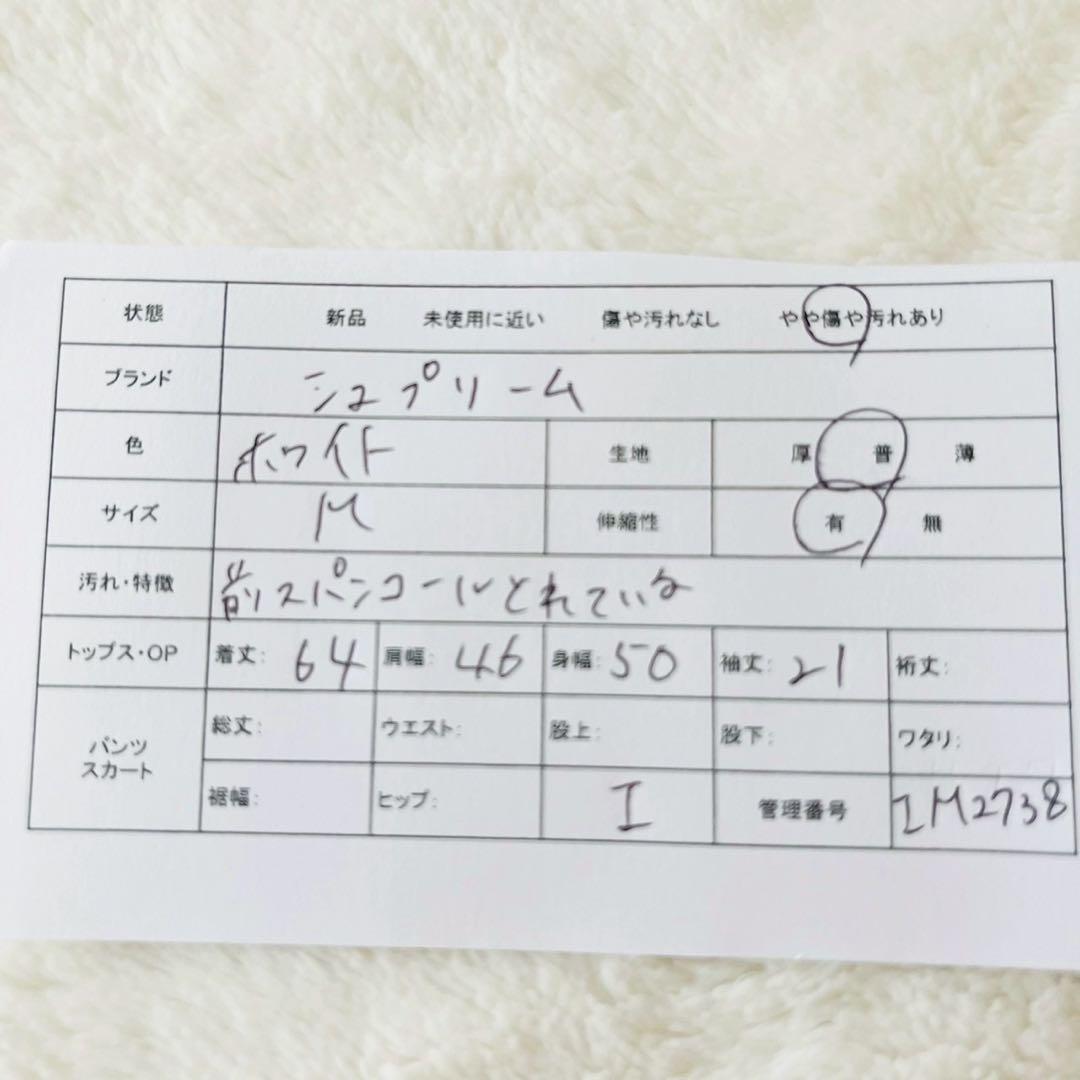 状態 新品 未使用に近い 傷や汚れなし やや傷や汚れあり
ブランド シュプリーム
色 ホワイト 生地 厚 普 薄
サイズ M 伸縮性 有 無
汚れ・特徴 前スパンコールとれている
トップス・OP 着丈: 64 肩幅: 46 身幅: 50 袖丈: 21 裄丈:
パンツ スカート 総丈: ウエスト: 股上: 股下: ワタリ:
裾幅: ヒップ: I 管理番号 IM2738